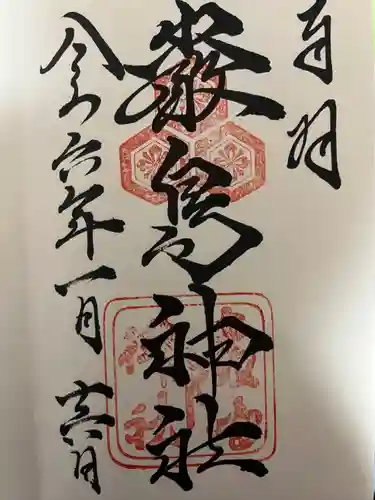 奉拝
厳島神社
令和六年一月十六日